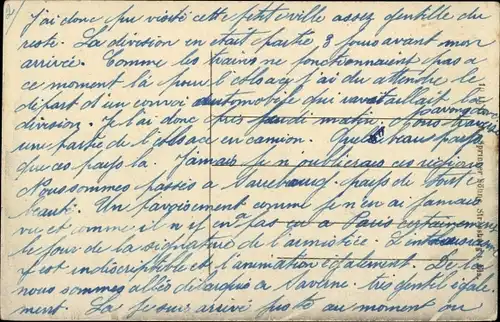 2)
J'ai donc pu visité cette petite ville assez gentille du
reste. La division en était partie 3 jours avant mon
arrivée. Comme les trains ne fonctionnaient pas à
ce moment là pour l'Alsace, j'ai du attendre le
départ d'un convoi automobile qui ravitaillait la
division. Je l'ai donc pris jeudi matin. Nous
une partie de l'Alsace en camion. Quels beaux pays
que ces pays là. Jamais je n'oublierais ces régions
Nous sommes passés à pays de toute
beauté. Un comme je n'en ai jamais
vu et comme il n'y en pas eu à Paris certainement
le jour de la signature de l'armistice.
y est indescriptible et l'animation également. De là
nous sommes allés à Saverne très gentil égale-
ment. Là je suis arrivé juste au moment ou